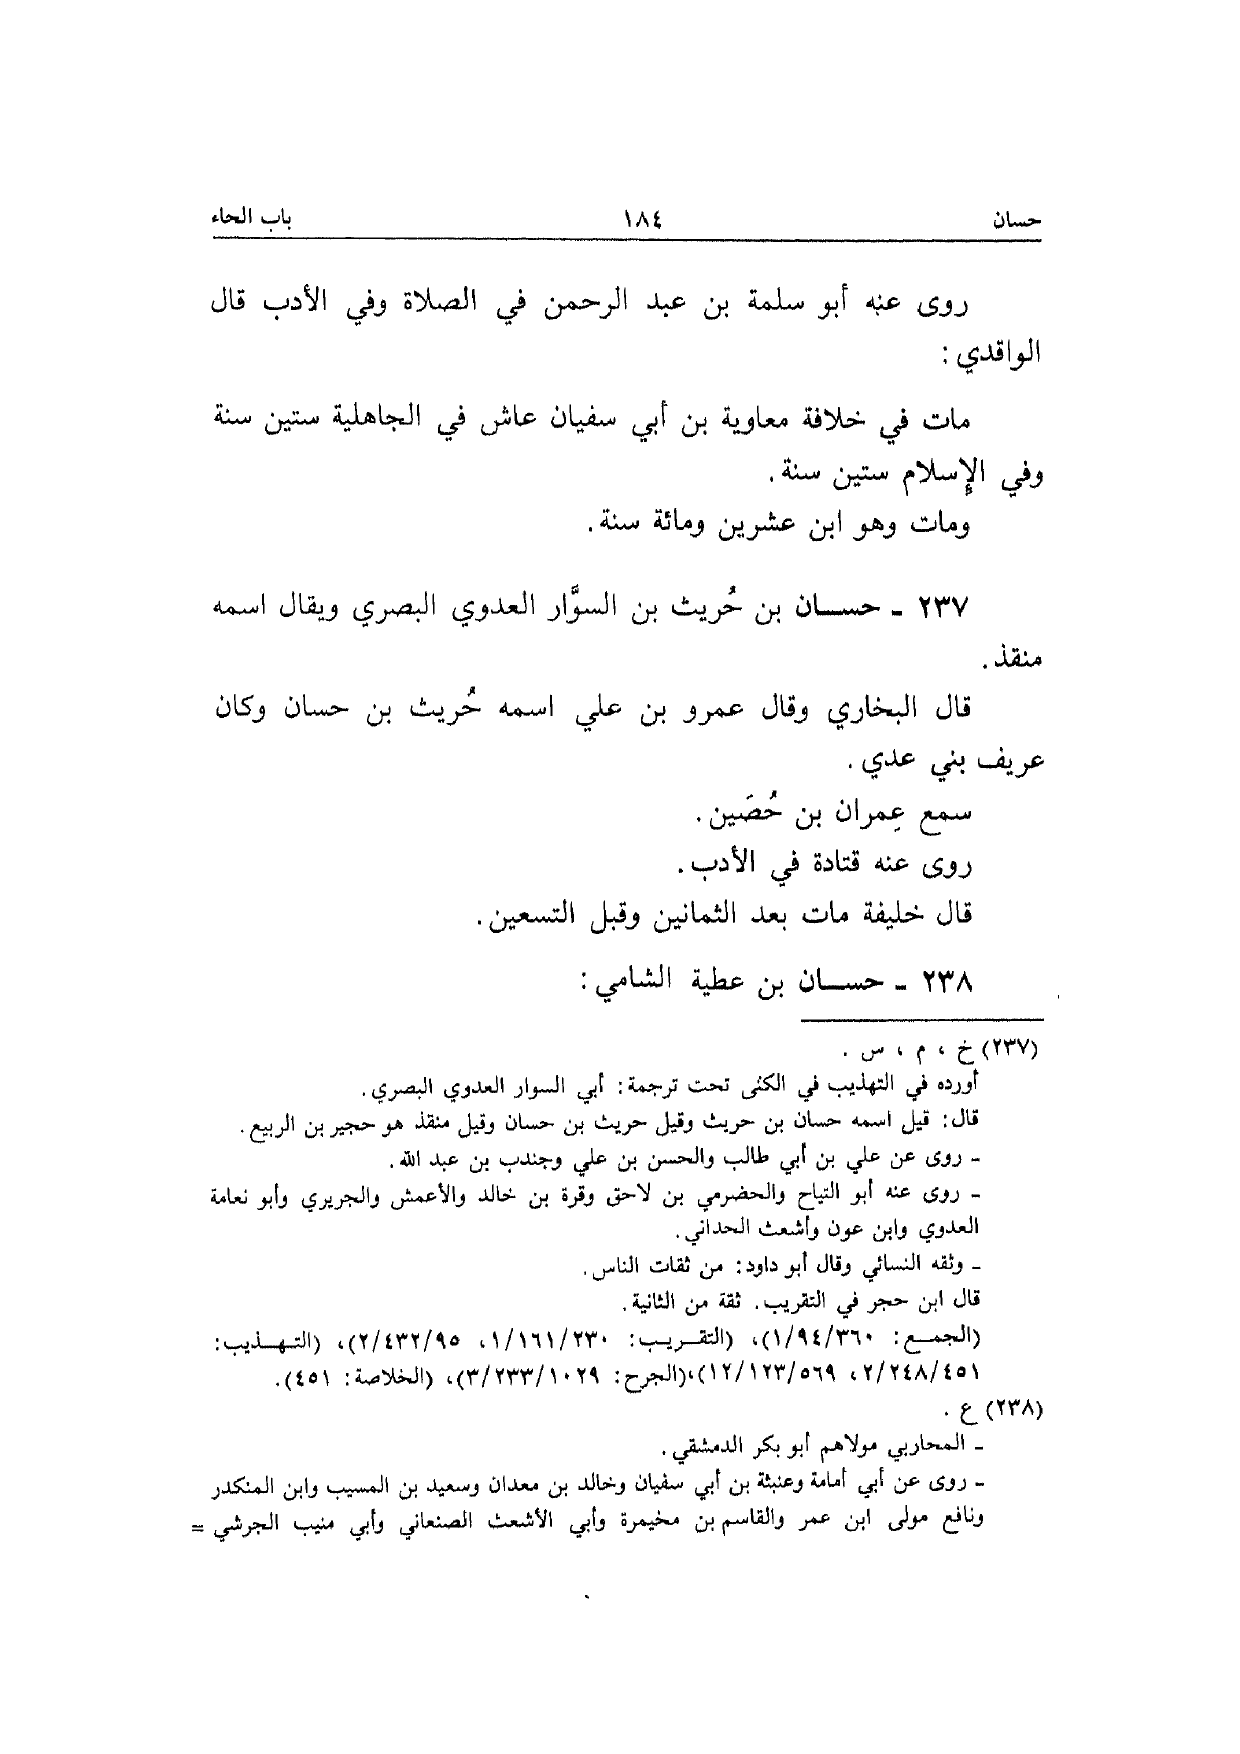 حسان ١٨٤ باب الحاء
روى عنه أبو سلمة بن عبد الرحمن في الصلاة وفي الأدب قال
الواقدي :
مات في خلافة معاوية بن أبي سفيان عاش في الجاهلية ستين سنة
وفي الإسلام ستين سنة .
ومات وهو ابن عشرين ومائة سنة .
٢٣٧ ـ حسـان بن حُريث بن السوَّار العدوي البصري ويقال اسمه
منقذ .
قال البخاري وقال عمرو بن علي اسمه حُريث بن حسان وكان
عريف بني عدي .
سمع عِمران بن حُصَين .
روى عنه قتادة في الأدب .
قال خليفة مات بعد الثمانين وقبل التسعين .
٢٣٨ ـ حسـان بن عطية الشامي :
(٢٣٧) خ ، م ، س .
أورده في التهذيب في الكنى تحت ترجمة : أبي السوار العدوي البصري .
قال : قيل اسمه حسان بن حريث وقيل حريث بن حسان وقيل منقذ هو حجير بن الربيع .
ـ روى عن علي بن أبي طالب والحسن بن علي وجندب بن عبد الله .
ـ روى عنه أبو التياح والحضرمي بن لاحق وقرة بن خالد والأعمش والجريري وأبو نعامة
العدوي وابن عون وأشعث الحداني .
ـ وثقه النسائي وقال أبو داود : من ثقات الناس .
قال ابن حجر في التقريب . ثقة من الثانية .
(الجمـع : ١/٩٤/٣٦٠)، (التقـريـب : ١/١٦١/٢٣٠، ٢/٤٣٢/٩٥)، (التهـذيب :
٢/٢٤٨/٤٥١، ١٢/١٢٣/٥٦٩)،(الجرح : ٣/٢٣٣/١٠٢٩)، (الخلاصة : ٤٥١).
(٢٣٨) ع .
ـ المحاربي مولاهم أبو بكر الدمشقي .
ـ روى عن أبي أمامة وعنبثة بن أبي سفيان وخالد بن معدان وسعيد بن المسيب وابن المنكدر
ونافع مولى ابن عمر والقاسم بن مخيمرة وأبي الأشعث الصنعاني وأبي منيب الجرشي =